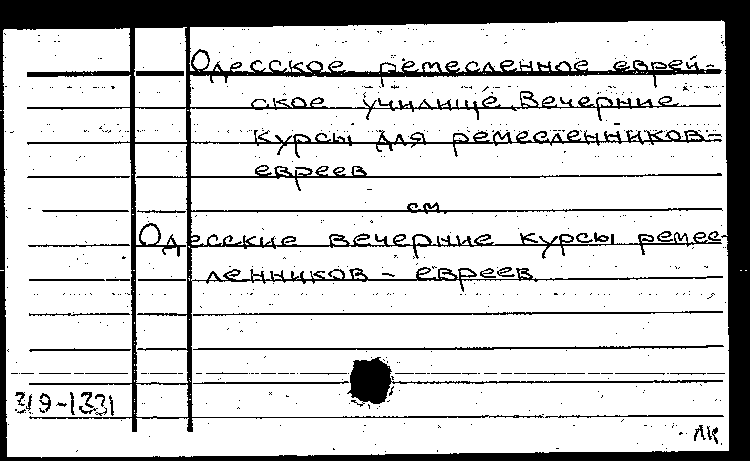 Одесское ремесленное еврей-
ское училище. Вечерние
курсы для ремесленников-
евреев
см.
Одесские вечерние курсы ремес-
ленников - евреев.
319-1331
ЛК